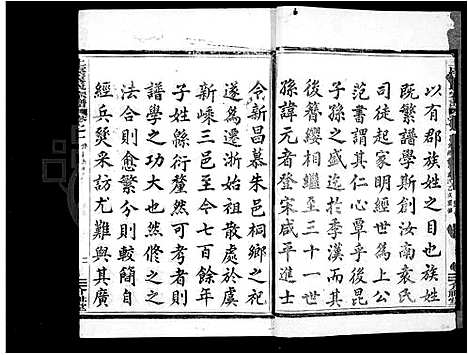 以有郡族姓之目也族姓
既繁譜學斯創汝南袁氏
司徒起家明經世為上公
范書謂其仁心覃乎後昆
子孫之盛迄于李漢而其
後簪纓相繼至三十一世
孫諱元者登宋咸平進士
令新昌慕朱邑桐鄉之祀
遂為遷浙始祖散處於虞
新嵊三邑至今七百餘年
子姓緜衍釐然可考者則
譜學之功大也然修之之
法合則愈繁分則較簡自
經兵燹采訪尤難與其廣